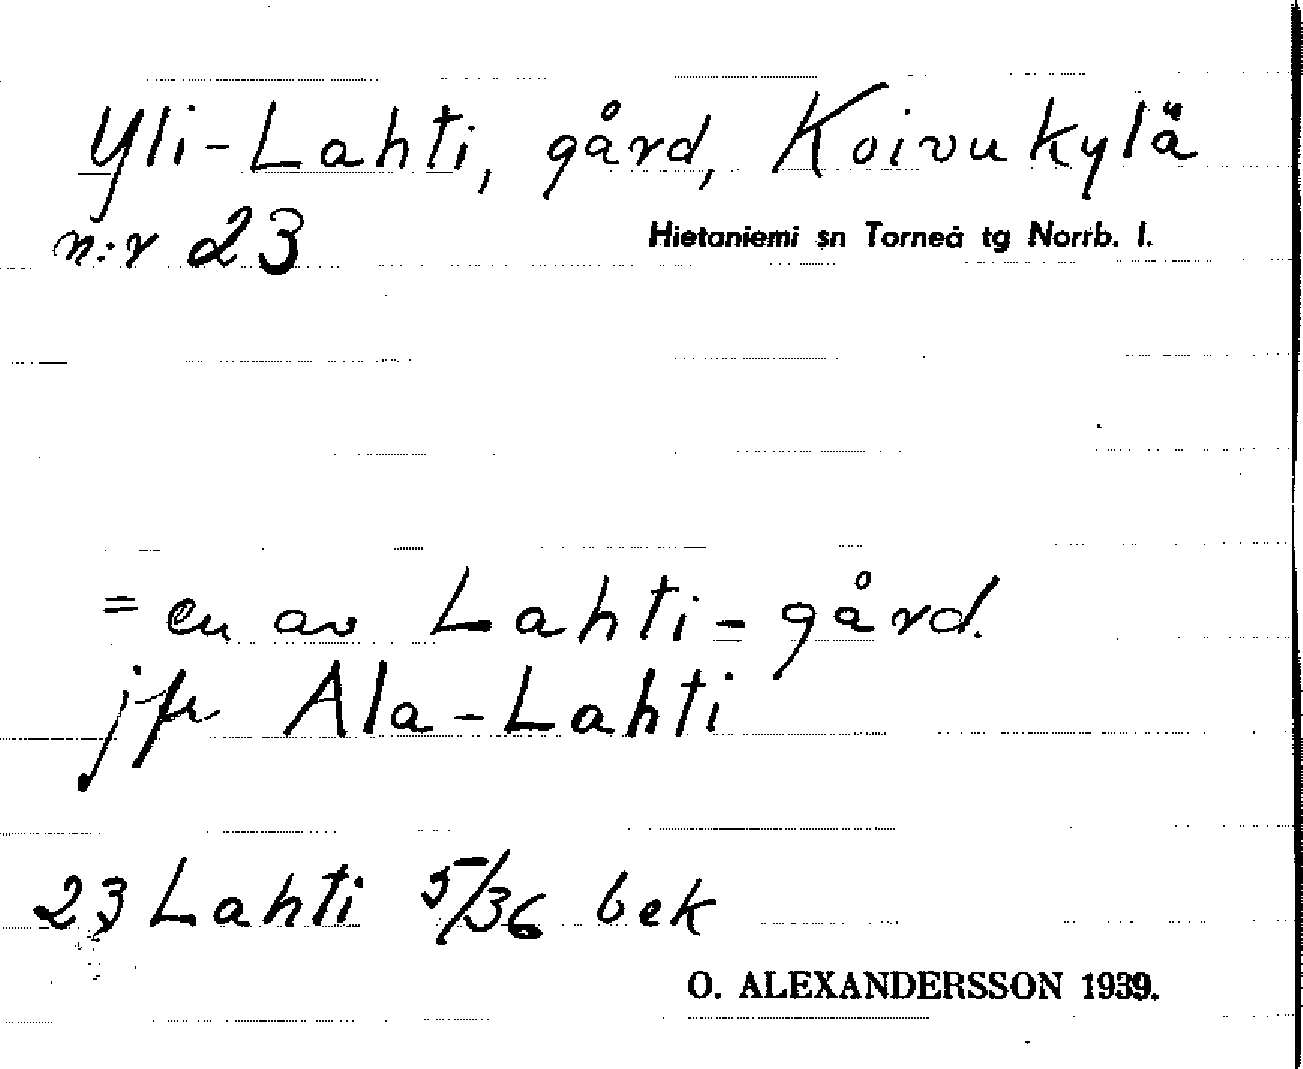 Yli-Lahti, gård, Koivukylä
n:r 23
Hietaniemi sn Torneå tg Norrb. l.
= en av Lahti-gård.
jfr Ala-Lahti
23 Lahti 5/36 bek
O. ALEXANDERSSON 1939.